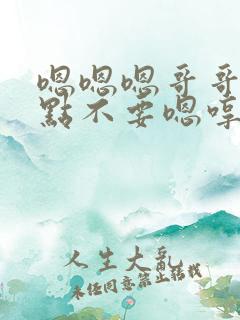 嗯嗯嗯哥哥
點不要嗯哼
人生大亂
未经同意禁止转载